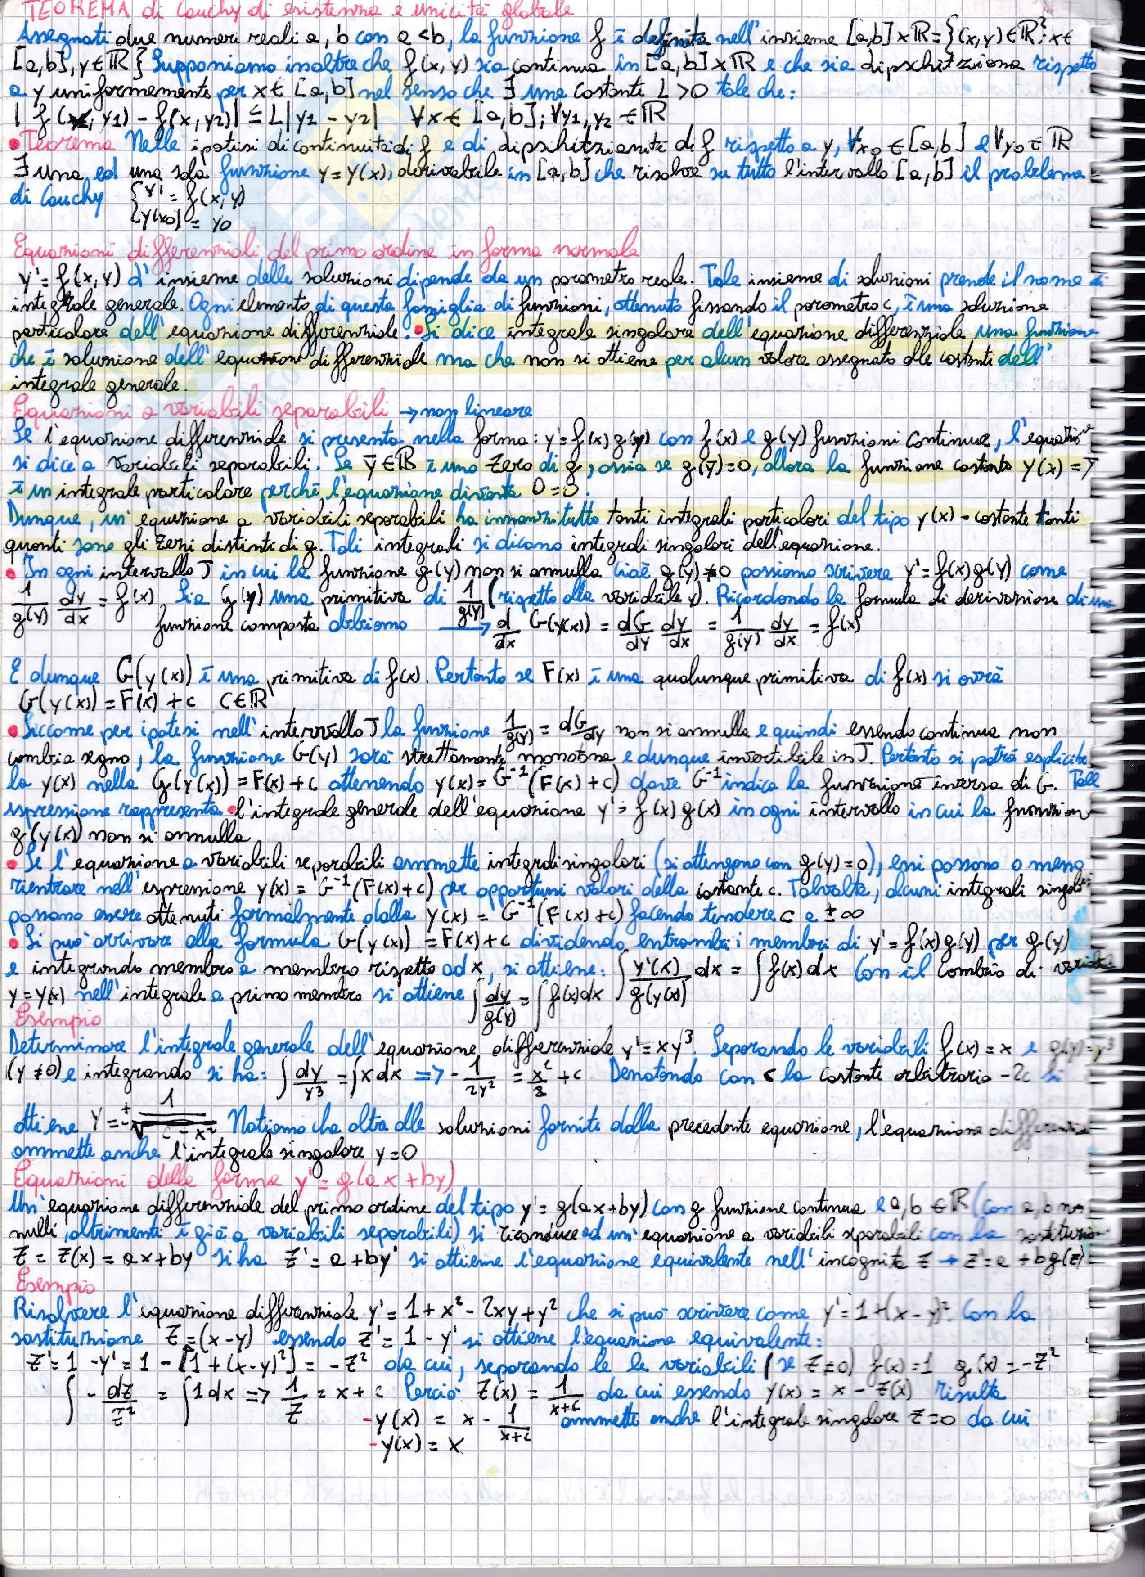 TEOREMA di Cauchy di esistenza e unicità globale
Assegnati due numeri reali a, b con a<b, la funzione f è definita nell'insieme [a,b]xℝ={(x,y)∈ℝ²: x∈
[a,b], y∈ℝ} Supponiamo inoltre che f(x,y) sia continua in [a,b]xℝ e che sia lipschitziana rispetto
a y uniformemente per x∈[a,b] nel senso che ∃ una costante L>0 tale che:
|f(x,y1)-f(x,y2)| ≤ L|y1-y2| ∀x∈[a,b]; ∀y1,y2∈ℝ
• Teorema Nelle ipotesi di continuità di f e di lipschitzianità di f rispetto a y, ∀x0∈[a,b] e ∀y0∈ℝ
∃ una, ed una sola funzione y=y(x), derivabile in [a,b] che risolve su tutto l'intervallo [a,b] il problema
di Cauchy {y'=f(x,y)
{y(x0)=y0
Equazioni differenziali del primo ordine in forma normale
y'=f(x,y) l'insieme delle soluzioni dipende da un parametro reale. Tale insieme di soluzioni prende il nome di
integrale generale. Ogni elemento di questa famiglia di funzioni, ottenuto fissando il parametro c, è una soluzione
particolare dell'equazione differenziale. • Si dice integrale singolare dell'equazione differenziale una funzione
che è soluzione dell'equazione differenziale ma che non si ottiene per alcun valore assegnato alle costanti dell'
integrale generale.
Equazioni a variabili separabili → non lineare
Se l'equazione differenziale si presenta nella forma: y'=f(x)g(y) con f(x) e g(y) funzioni continue, l'equazione
si dice a variabili separabili. Se ȳ∈ℝ è uno zero di g, ossia se g(ȳ)=0, allora la funzione costante y(x)=ȳ
è un integrale particolare perché l'equazione diventa 0=0.
Dunque, un'equazione a variabili separabili ha innanzitutto tanti integrali particolari del tipo y(x)=costante tanti
quanti sono gli zeri distinti di g. Tali integrali si dicono integrali singolari dell'equazione.
• In ogni intervallo J in cui la funzione g(y) non si annulla cioè g(y)≠0 possiamo scrivere y'=f(x)g(y) come
1/g(y) dy/dx = f(x) Sia G(y) una primitiva di 1/g(y) (rispetto alla variabile y). Ricordando la formula di derivazione di una
funzione composta abbiamo → d/dx G(y(x)) = dG/dy dy/dx = 1/g(y) dy/dx = f(x)
E dunque G(y(x)) è una primitiva di f(x). Pertanto se F(x) è una qualunque primitiva di f(x) si avrà
G(y(x))=F(x)+c c∈ℝ
• Siccome per ipotesi nell'intervallo J la funzione 1/g(y) = dG/dy non si annulla e quindi essendo continua non
cambia segno, la funzione G(y) sarà strettamente monotona e dunque invertibile in J. Pertanto si potrà esplicitare
la y(x) nella G(y(x))=F(x)+c ottenendo y(x)=G⁻¹(F(x)+c) dove G⁻¹ indica la funzione inversa di G. Tale
espressione rappresenta • l'integrale generale dell'equazione y'=f(x)g(x) in ogni intervallo in cui la funzione
g(y(x)) non si annulla
• Se l'equazione a variabili separabili ammette integrali singolari (si ottengono con g(y)=0), essi possono o meno
rientrare nell'espressione y(x)=G⁻¹(F(x)+c) per opportuni valori della costante c. Talvolta, alcuni integrali singolari
possono essere ottenuti formalmente dalla y(x)=G⁻¹(F(x)+c) facendo tendere c a ±∞
• Si può arrivare alla formula G(y(x))=F(x)+c dividendo entrambi i membri di y'=f(x)g(y) per g(y)
e integrando membro a membro rispetto ad x, si ottiene: ∫ y'(x)/g(y(x)) dx = ∫ f(x)dx Con il cambio di variabile
y=y(x) nell'integrale a primo membro si ottiene ∫ dy/g(y) = ∫ f(x)dx
Esempio
Determinare l'integrale generale dell'equazione differenziale y'=xy³. Separando le variabili f(x)=x e g(y)=y³
(y≠0) e integrando si ha: ∫ dy/y³ = ∫ x dx => -1/2y² = x²/2 + c Denotando con c la costante arbitraria -2c si
ottiene y=± 1/√(c-x²) Notiamo che oltre alle soluzioni fornite dalla precedente equazione, l'equazione differenziale
ammette anche l'integrale singolare y=0
Equazioni della forma y'=g(ax+by)
Un'equazione differenziale del primo ordine del tipo y'=g(ax+by) con g funzione continua e a,b∈ℝ (con a,b non
nulli, altrimenti è già a variabili separabili) si riconduce ad un'equazione a variabili separabili con la sostituzione
z=z(x)=ax+by si ha z'=a+by' si ottiene l'equazione equivalente nell'incognita z → z'=a+bg(z)
Esempio
Risolvere l'equazione differenziale y'=1+x²-2xy+y² che si può scrivere come y'=1+(x-y)². Con la
sostituzione z=(x-y) essendo z'=1-y' si ottiene l'equazione equivalente:
z'=1-y'=1-[1+(x-y)²]=-z² da cui, separando le le variabili (se z≠0) f(x)=1 g(x)=-z²
∫ -dz/z² = ∫ 1dx => 1/z = x+c Perciò z(x)= 1/x+c da cui essendo y(x)=x-z(x) risulta
-y(x)=x- 1/x+c ammette anche l'integrale singolare z=0 da cui
-y(x)=x